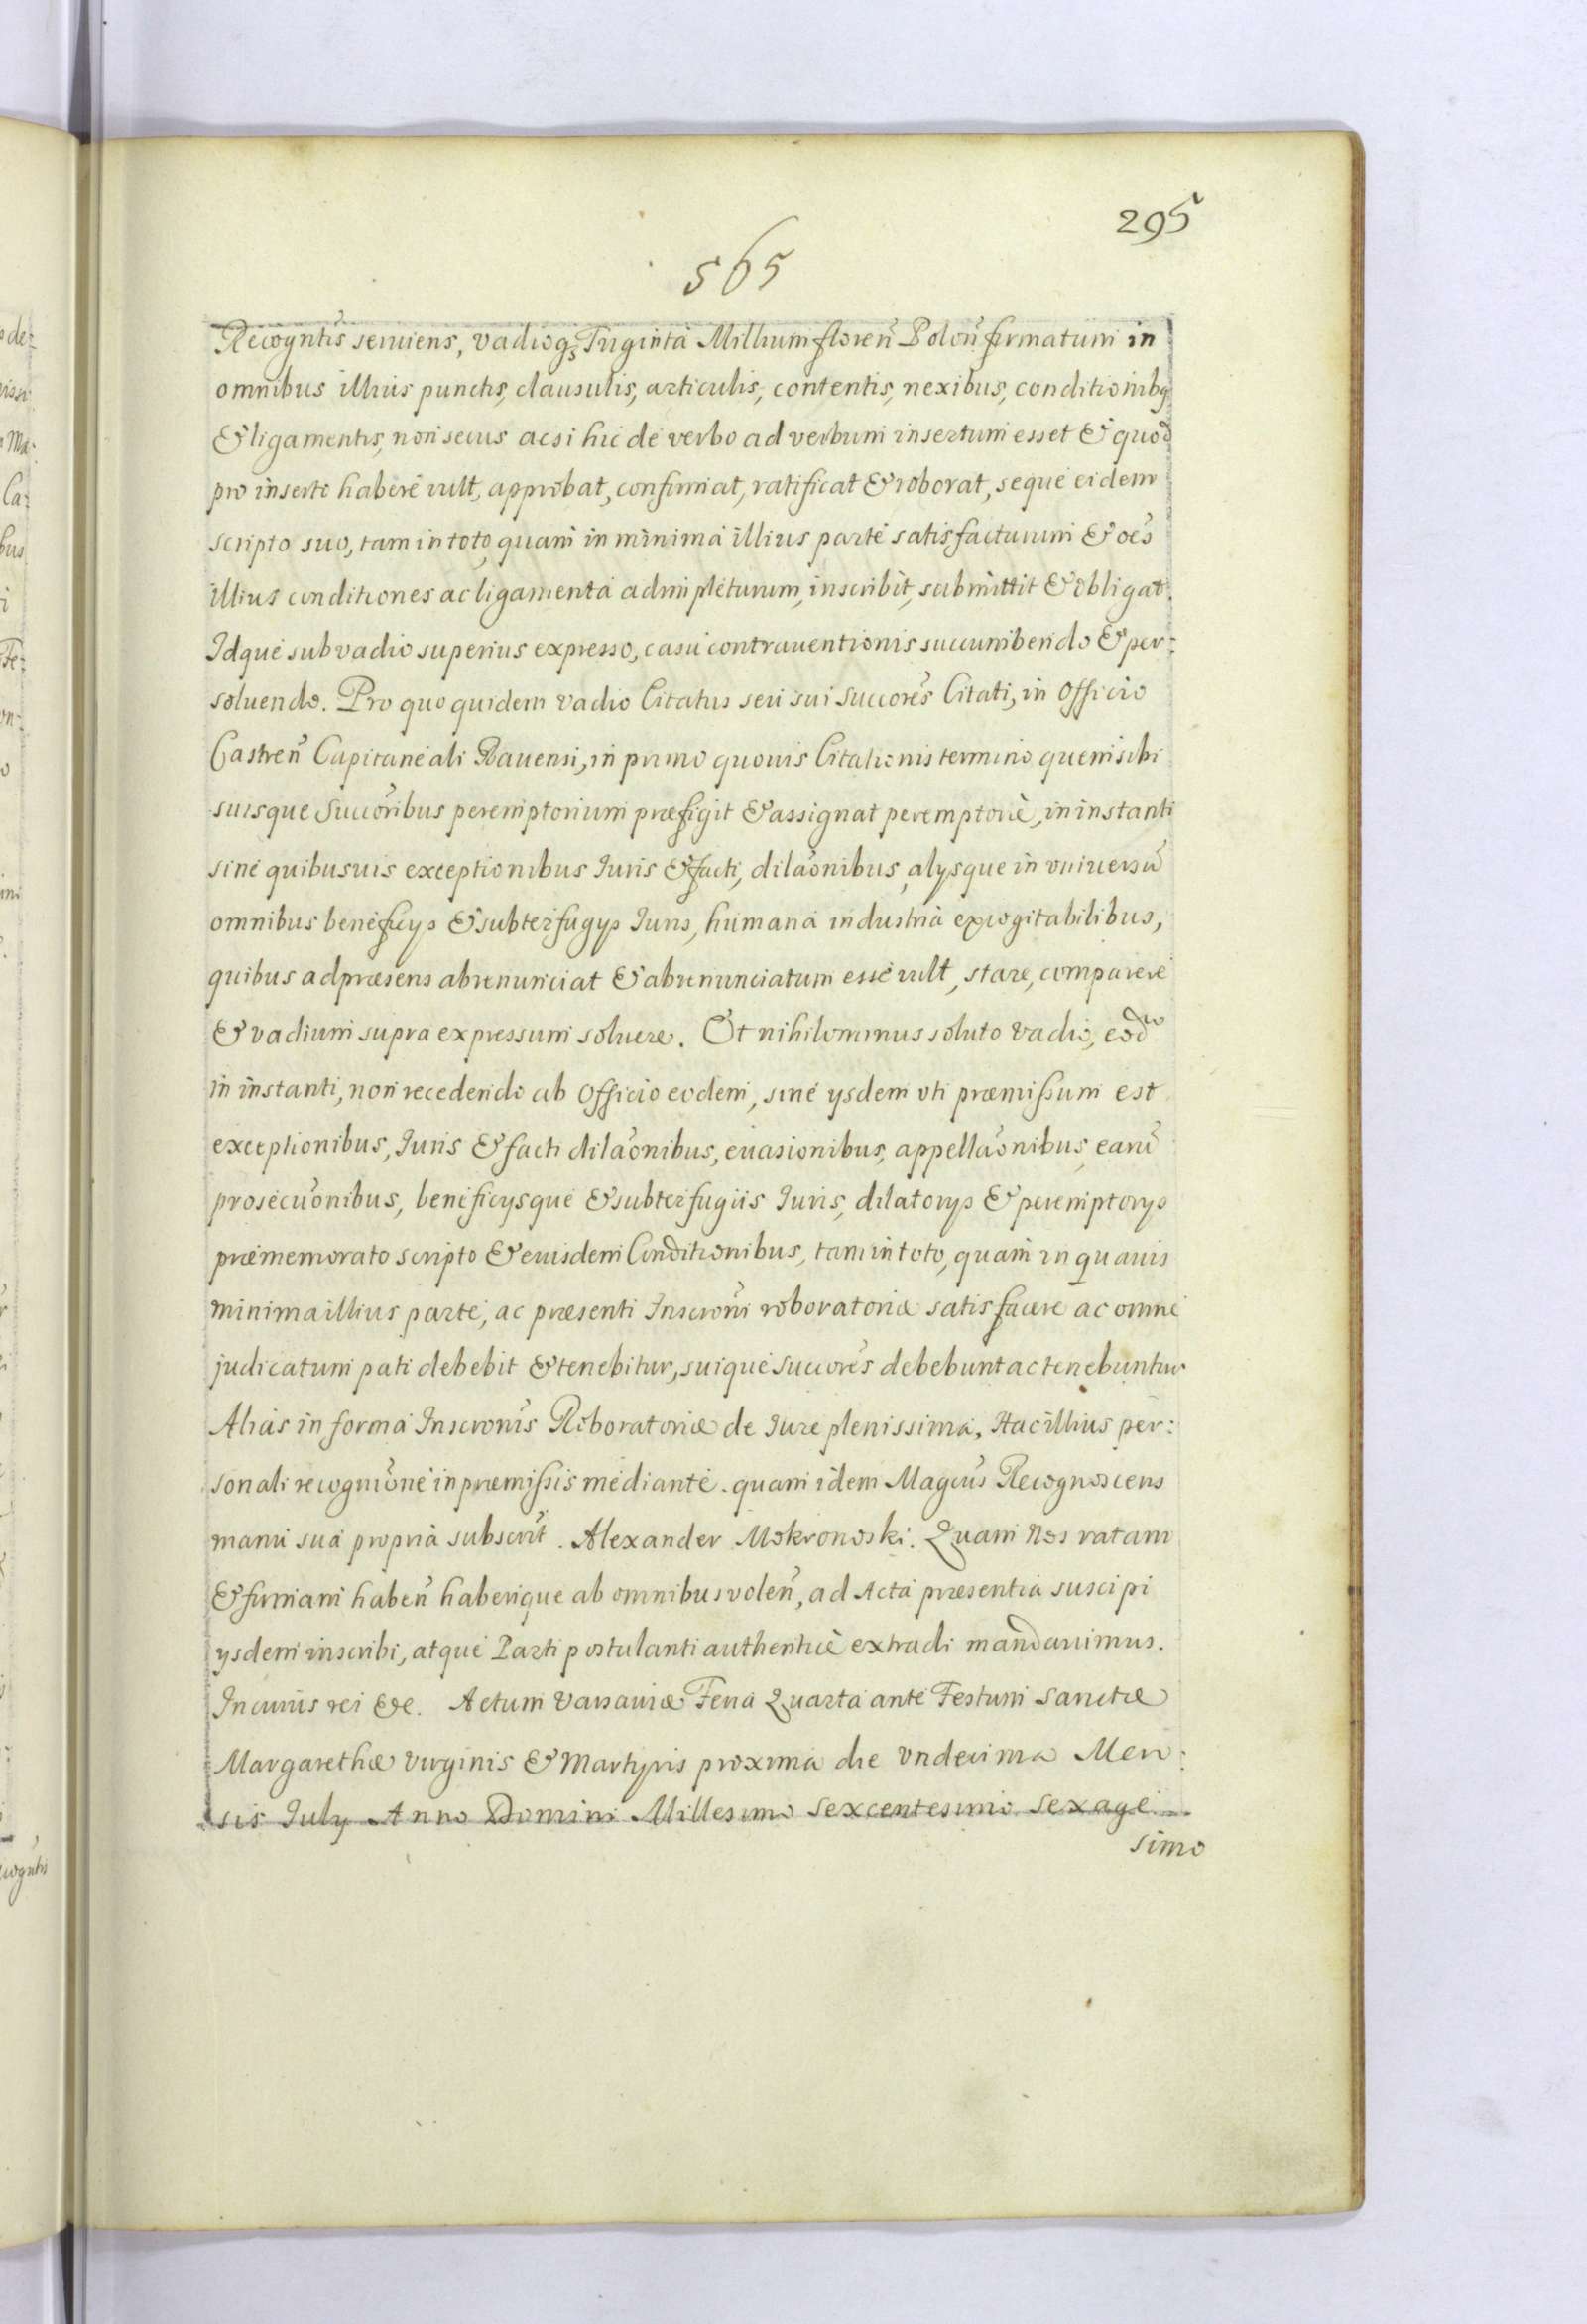 295
565
Recogntis seruiens, vadioq3 Triginta Millium floren Polon firmatum in
omnibus illius punctis, clausulis, articulis, contentis, nexibus, conditionibq
& ligamentis, non secus ac si hic de verbo ad verbum insertum esset & quod
pro inserto habere vult, approbat, confirmat, ratificat & roborat, seque eidem
scripto suo, tam in toto, quam in minima illius parte satisfacturum & oes
illius conditiones ac ligamenta adimpleturum, inscribit, submittit & obligat.
Idque sub vadio superius expresso, casu contrauentionis succumbendo & per:
soluendo. Pro quo quidem vadio Citatus seu sui Succores Citati, in Officio
Castren Capitaneali Rauensi, in primo quouis Citationis termino quem sibi
suisque Succoribus peremptorium præfigit & assignat peremptorie, in instanti
sine quibusuis exceptionibus Iuris & facti, dilaonibus, alysque in vniuersu
omnibus beneficys & subterfugys Iuris, humana industria excogitabilibus,
quibus ad præsens abrenunciat & abrenunciatum esse vult, stare, comparere
& vadium supra expressum soluere. Et nihilominus soluto vadio, eod
in instanti, non recedendo ab Officio eodem, sine ysdem vti præmissum est
exceptionibus, Iuris & facti dilaonibus, euasionibus, appellaonibus, earu
prosecuonibus, beneficysque & subterfugiis Iuris, dilatorys & peremptorys
præmemorato scripto & eiusdem Conditionibus, tam in toto, quam in quauis
minima illius parte, ac præsenti Inscroni roboratoriæ satisfacere ac omne
judicatum pati debebit & tenebitur, suique succores debebunt ac tenebuntur
Alias in forma Inscronis Roboratoriæ de Iure plenissima, Hac illius per:
sonali recognione in præmissis mediante. quam idem Magcus Recognoscens
manu sua propria subscrit. Alexander Mokronoski. Quam Nos ratam
& firmam haben haberique ab omnibus volen, ad Acta præsentia suscipi
ysdem inscribi, atque Parti postulanti authentice extradi mandauimus.
In cuius rei &c. Actum Varsauiæ Feria Quarta ante Festum Sanctæ
Margarethæ Virginis & Martyris proxima die vndecima Men:
sis July Anno Domini Millesimo Sexcentesimo Sexage
simo